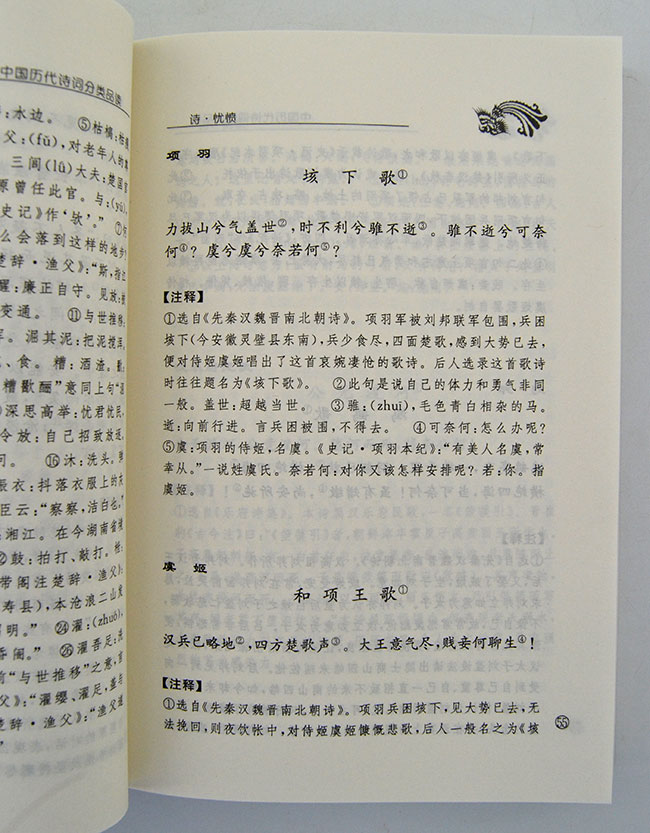 中国历代诗词分类品读
：水边。 ⑤枯槁：枯
父：(fǔ)，对老年人的
三闾(lǘ)大夫：楚国官
原曾任此官。与：(yú)，
史记》作‘欤’。” ⑦何
么会落到这样的地步
楚辞·渔父》：“斯，指江
醒：廉正自守。见放：被
变通。 ⑪与世推移，
浑。 淈其泥：把泥搅浑，
、食。 糟：酒渣。
糟歠醨”意同上句“淈
深思高举：忧君忧民，
令放：自己招致放逐。
问。 ⑯沐：洗头。
振衣：抖落衣服上的灰
臣云：“察察，洁白也。”
湘江。在今湖南省境
鼓：拍打、敲打。枻：
带阁注楚辞·渔父》：
寿县)，本沧浪二山发
明。” ㉔濯：(zhuó)，
昏闇。” ㉖濯吾足：洗
前“与世推移”之意，言
父》：“濯缨、濯足，盖与
楚辞·渔父》：“渔父
诗·忧愤
项 羽
垓下歌①
力拔山兮气盖世②，时不利兮骓不逝③。骓不逝兮可奈
何④？虞兮虞兮奈若何⑤？
【注释】
①选自《先秦汉魏晋南北朝诗》。项羽军被刘邦联军包围，兵困
垓下(今安徽灵璧县东南)，兵少食尽，四面楚歌，感到大势已去，
便对侍姬虞姬唱出了这首哀婉凄怆的歌诗。后人选录这首歌诗
时往往题名为《垓下歌》。 ②此句是说自己的体力和勇气非同
一般。盖世：超越当世。 ③骓：(zhuī)，毛色青白相杂的马。
逝：向前行进。言兵困被围，不得去。 ④可奈何：怎么办呢？
⑤虞：项羽的侍姬，名虞。《史记·项羽本纪》：“有美人名虞，常
幸从。”一说姓虞氏。奈若何：对你又该怎样安排呢？若：你。指
虞姬。
虞 姬
和项王歌①
汉兵已略地②，四方楚歌声③。大王意气尽，贱妾何聊生④！
【注释】
①选自《先秦汉魏晋南北朝诗》。项羽兵困垓下，见大势已去，无
法挽回，则夜饮帐中，对侍姬虞姬慷慨悲歌，后人一般名之为《垓
55